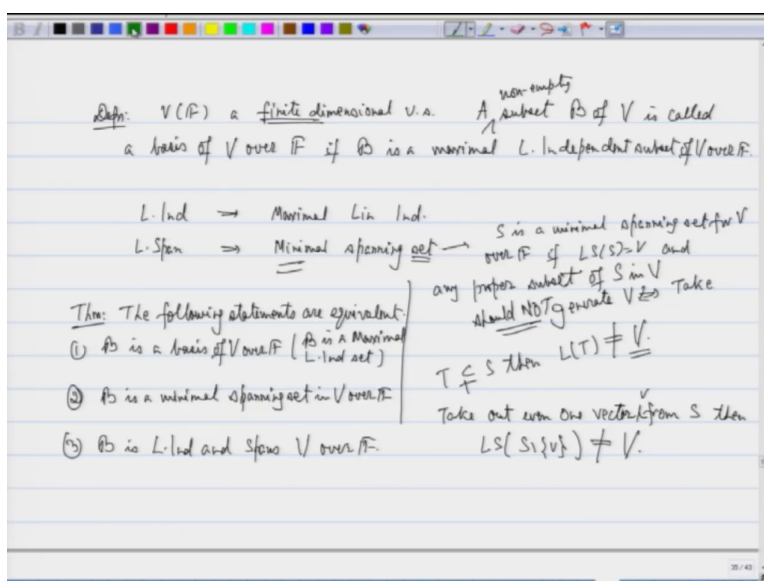 non-empty
Defn: V(F) a finite dimensional v.s. A subset B of V is called
a basis of V over F if B is a maximal L. Independent subset of V over F.
L. Ind → Maximal Lin Ind.
L. Span ⇒ Minimal spanning set →
S is a minimal spanning set for V
over F if LS(S)=V and
any proper subset of S in V
should NOT generate V ⇔ Take
T ⊊ S then L(T) ≠ V.
Take out even one vector v from S then
LS(S\{v}) ≠ V.
Thm: The following statements are equivalent.
① B is a basis of V over F (B is a Maximal
L. Ind set)
② B is a minimal spanning set in V over F
③ B is L. Ind and Spans V over F.
35 / 43